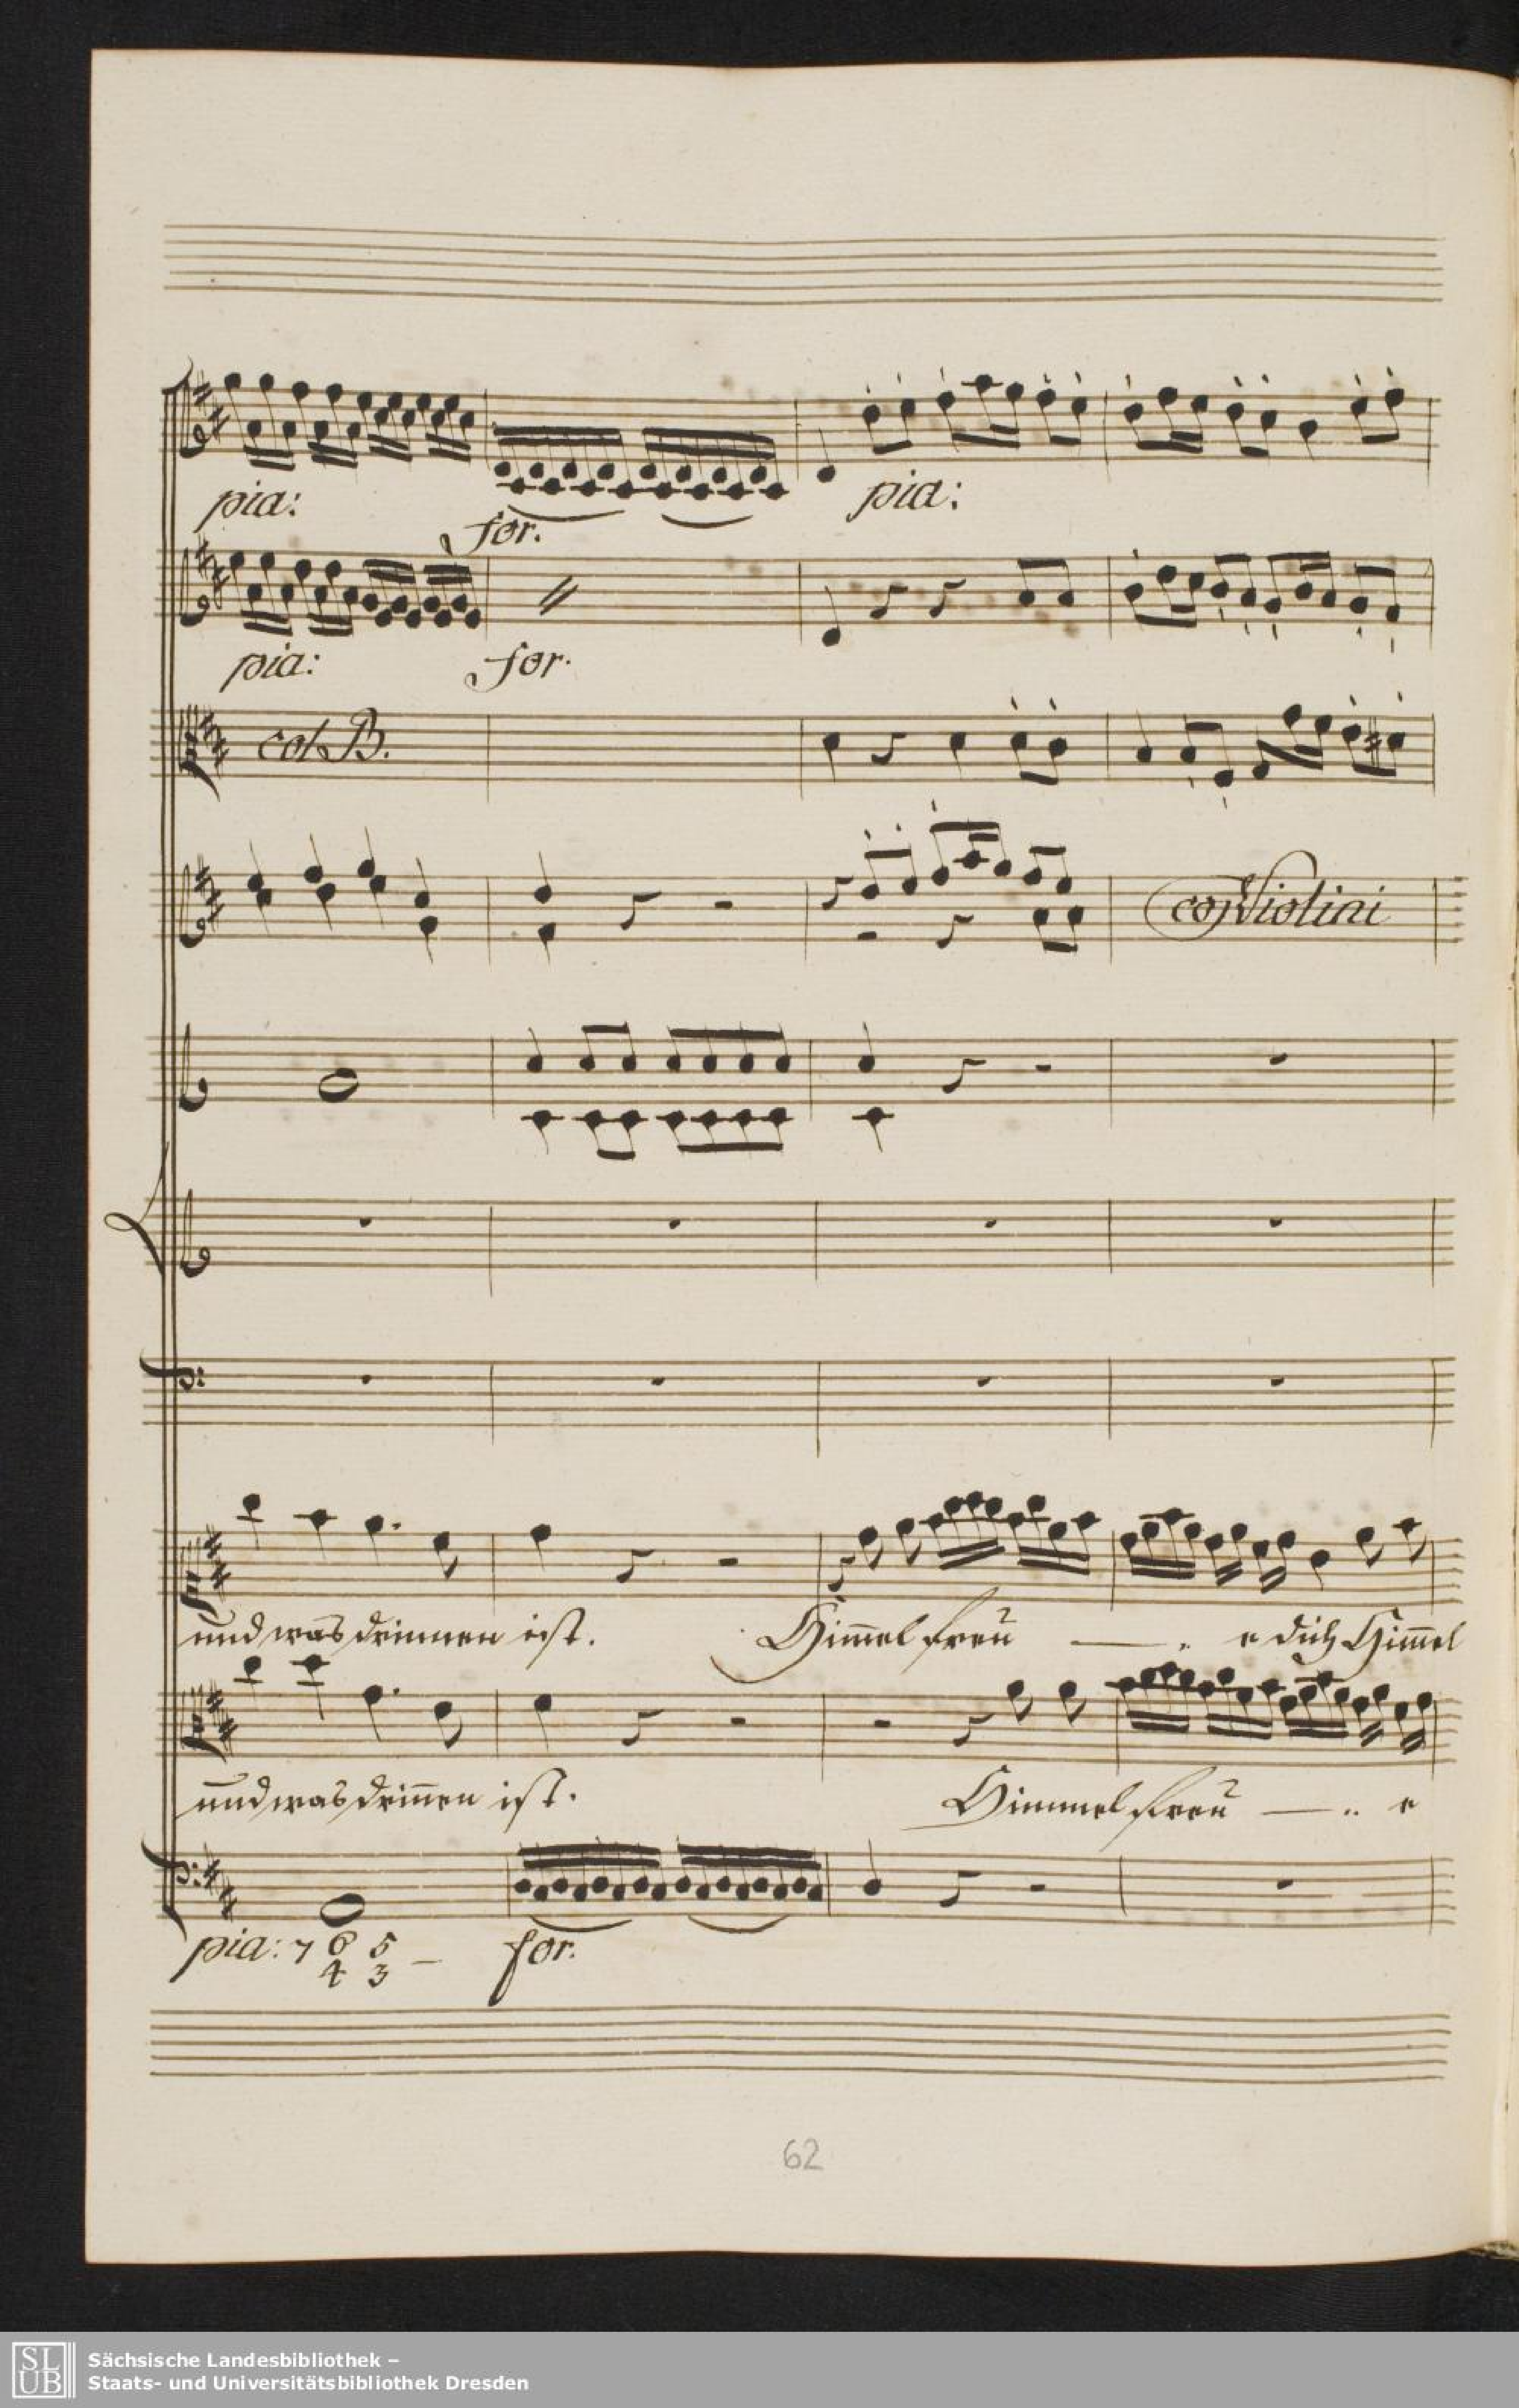 pia: for. pia:
pia: for.
col B.
co Violini
und was drinnen ist. Him̄el freū — . e dich Him̄el
und was drin̄en ist. Himmel freū — .. e
pia: 7 6 5 – for.
4 3
62
SLUB Sächsische Landesbibliothek –
Staats- und Universitätsbibliothek Dresden